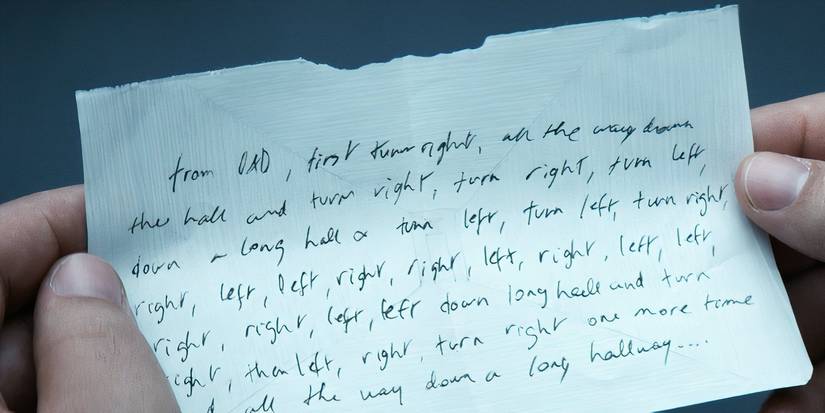 from O&D, first turn right, all the way down
the hall and turn right, turn right, turn left,
down a long hall & turn left, turn left, turn right,
right, left, left, right, right, left, right, left, left,
right, right, left, left down long hall and turn
right, then left, right, turn right one more time
all the way down a long hallway....